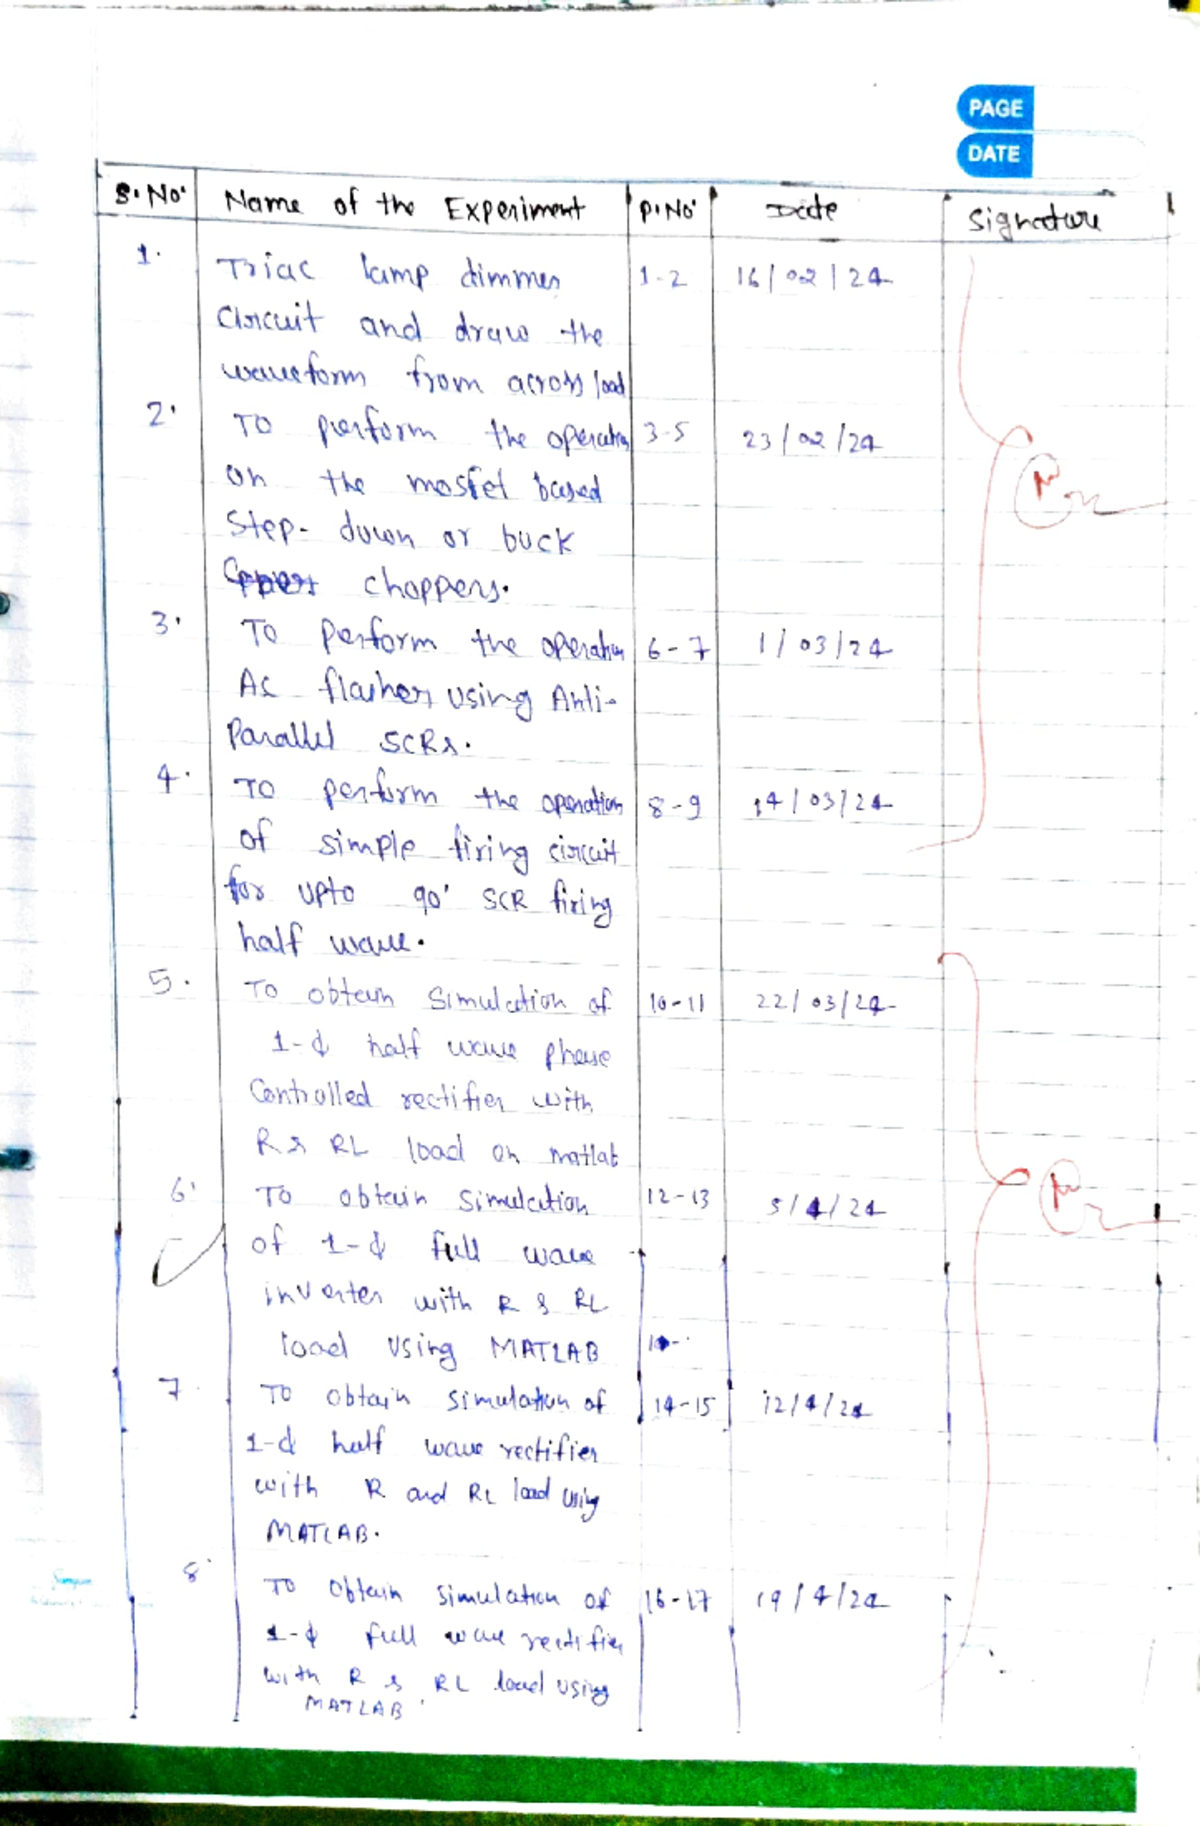 PAGE
DATE
S.No. Name of the Experiment P.No. Date Signature
1. Triac lamp dimmer 1-2 16/02/24
circuit and draw the
waveform from across load
2. To perform the operation 3-5 23/02/24
on the mosfet based
Step-down or buck
choppers.
3. To perform the operation 6-7 1/03/24
AC flasher using Anti-
Parallel SCRs.
4. To perform the operation 8-9 14/03/24
of simple firing circuit
for upto 90° SCR firing
half wave.
5. To obtain Simulation of 10-11 22/03/24
1-ϕ half wave phase
Controlled rectifier with
R & RL load on matlab
6. To obtain Simulation 12-13 5/4/24
of 1-ϕ full wave
inverter with R & RL
load using MATLAB
7. To obtain simulation of 14-15 12/4/24
1-ϕ half wave rectifier
with R and RL load using
MATLAB.
8. To obtain simulation of 16-17 19/4/24
1-ϕ full wave rectifier
with R & RL load using
MATLAB